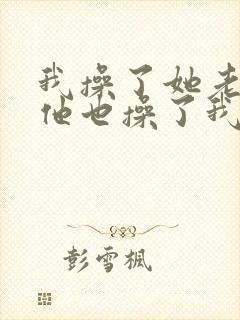 我操了她老
他也操了我
彭雪枫